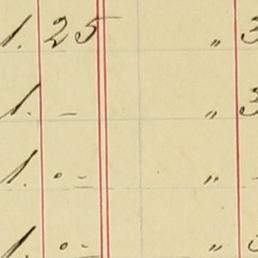 1. 25 " 3
1. - " 3
1. . - "
1. . - "